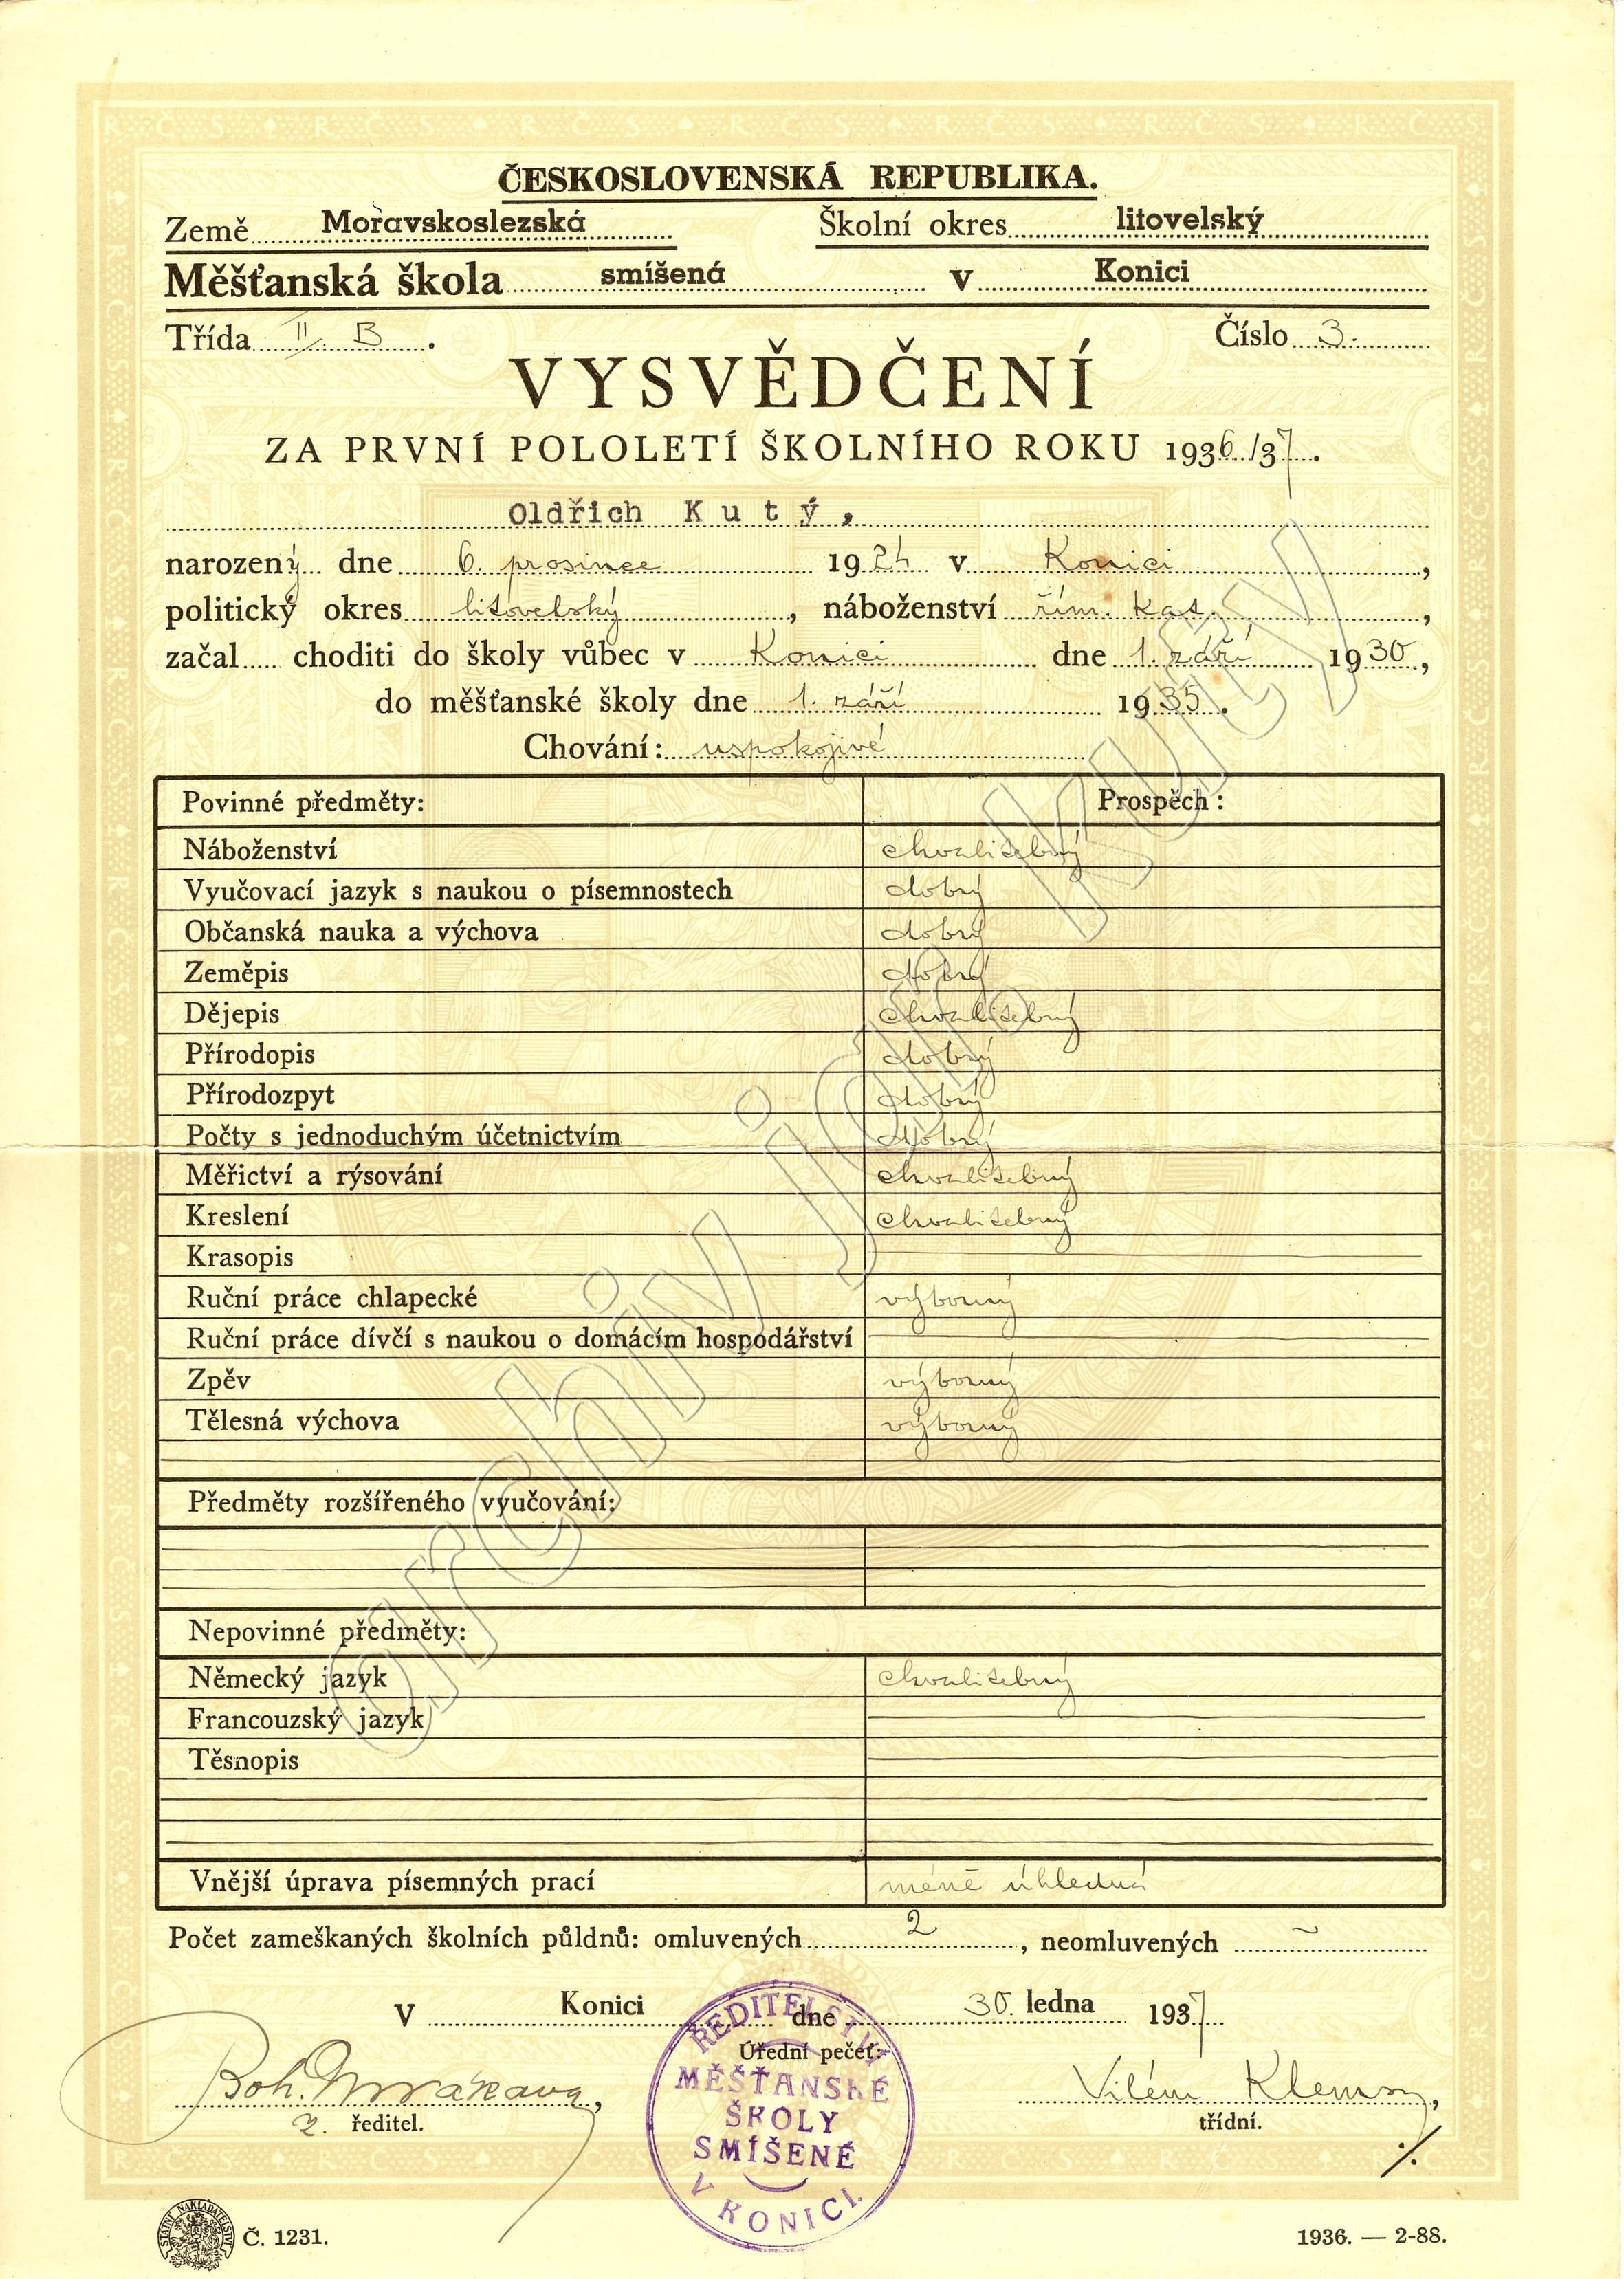 ČESKOSLOVENSKÁ REPUBLIKA.
Země Moravskoslezská Školní okres litovelský
Měšťanská škola smíšená v Konici
Třída II. B. Číslo 3.
VYSVĚDČENÍ
ZA PRVNÍ POLOLETÍ ŠKOLNÍHO ROKU 1936/37.
Oldřich Kutý,
narozený dne 6. prosince 1924 v Konici,
politický okres litovelský, náboženství řím. kat.,
začal choditi do školy vůbec v Konici dne 1. září 1930,
do měšťanské školy dne 1. září 1935.
Chování: uspokojivé
Povinné předměty: Prospěch:
Náboženství chvalitebný
Vyučovací jazyk s naukou o písemnostech dobrý
Občanská nauka a výchova dobrý
Zeměpis dobrý
Dějepis chvalitebný
Přírodopis dobrý
Přírodozpyt dobrý
Počty s jednoduchým účetnictvím dobrý
Měřictví a rýsování chvalitebný
Kreslení chvalitebný
Krasopis
Ruční práce chlapecké výborný
Ruční práce dívčí s naukou o domácím hospodářství
Zpěv výborný
Tělesná výchova výborný
Předměty rozšířeného vyučování:
Nepovinné předměty:
Německý jazyk chvalitebný
Francouzský jazyk
Těsnopis
Vnější úprava písemných prací méně úhledná
Počet zameškaných školních půldnů: omluvených 2, neomluvených –
V Konici dne 30. ledna 1937
Úřední pečeť:
ŘEDITELSTVÍ
MĚŠŤANSKÉ
ŠKOLY
SMÍŠENÉ
V KONICI.
Boh. , Vilém ,
z. ředitel. třídní.
STÁTNÍ NAKLADATELSTVÍ Č. 1231. 1936. — 2-88.
archiv jar. kutý